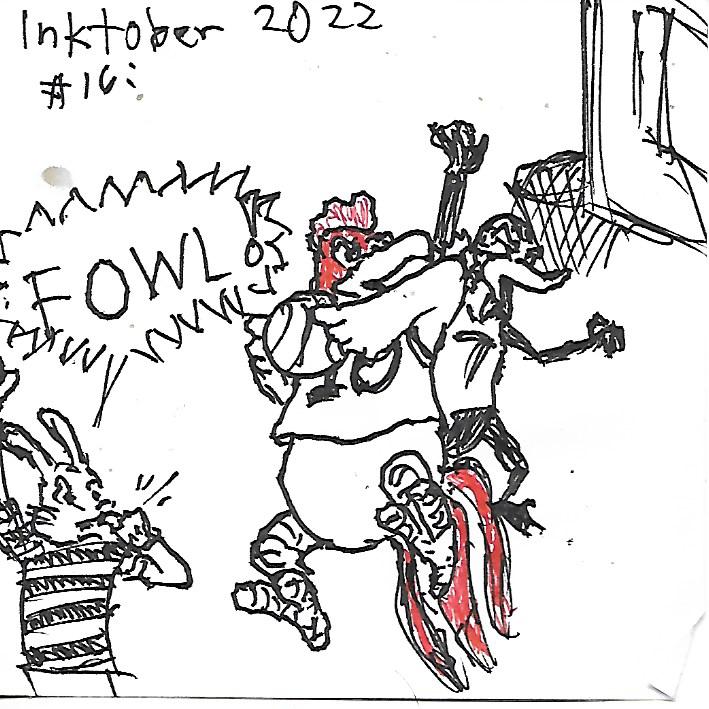 Inktober 2022
#16:
FOWL
10